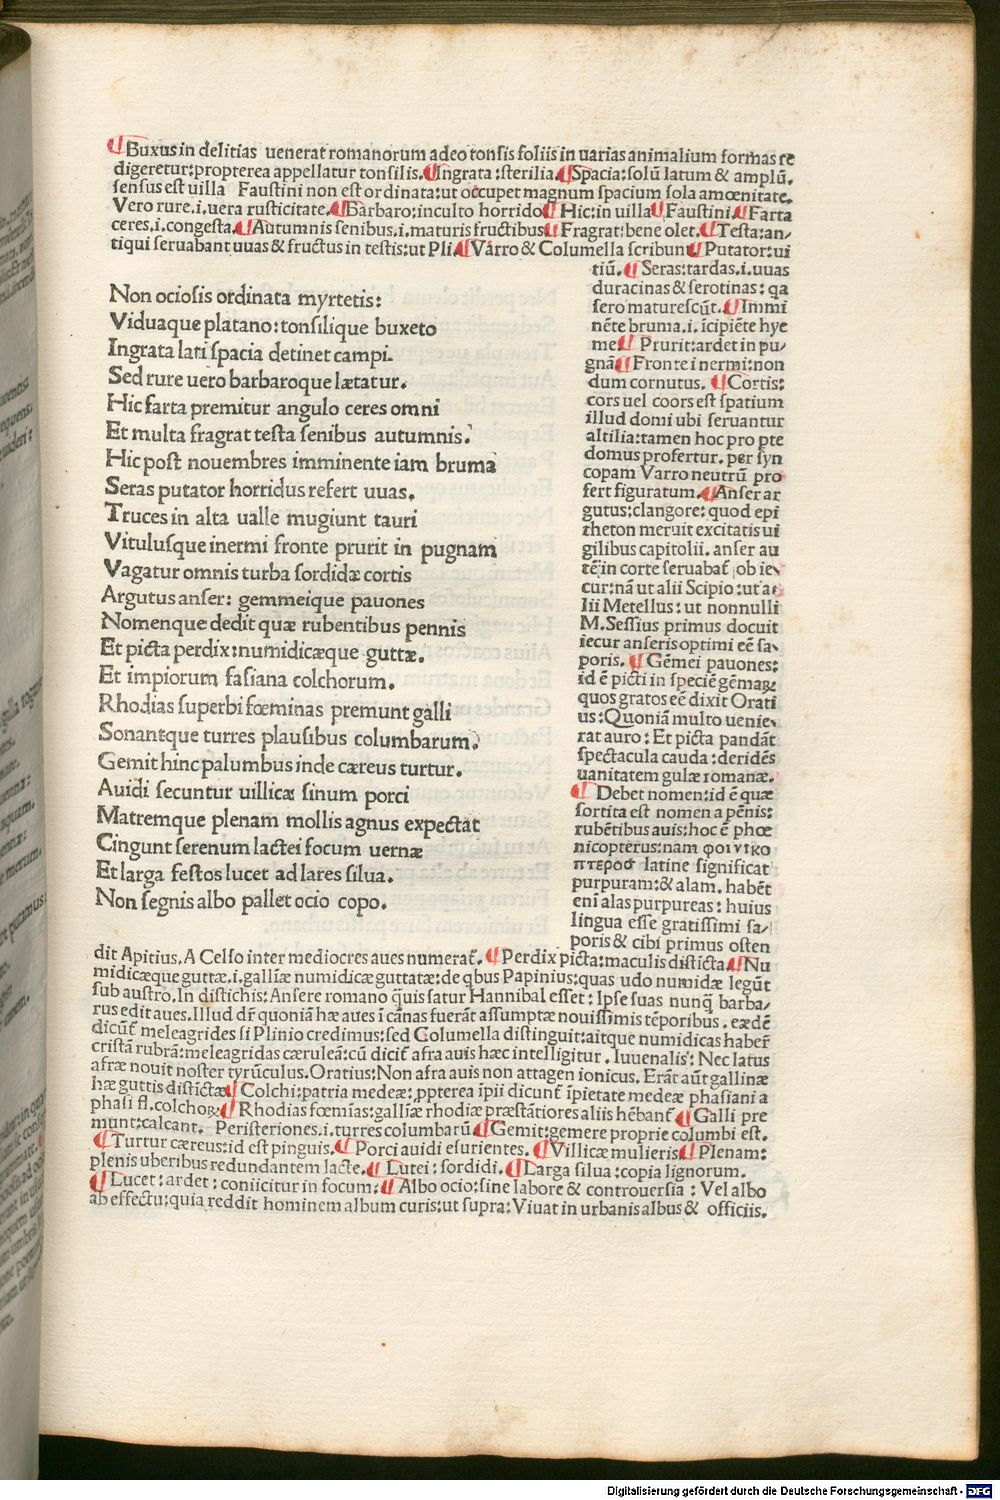 ¶Buxus in delitias uenerat romanorum adeo tonsis foliis in uarias animalium formas re
digeretur:propterea appellatur tonsilis.¶Ingrata:sterilia.¶Spacia:solũ latum & amplũ.
sensus est uilla Faustini non est ordinata:ut occupet magnum spacium sola amœnitate.
Vero rure.i.uera rusticitate.¶Barbaro:inculto horrido¶Hic:in uilla¶Faustini.¶Farta
ceres.i.congesta.¶Autumnis senibus.i.maturis fructibus¶Fragrat:bene olet.¶Testa:an/
tiqui seruabant uuas & fructus in testis:ut Pli.¶Varro & Columella scribunt¶Putator:ui
tiũ.¶Seras:tardas.i.uuas
duracinas & serotinas:qa
sero maturescũt.¶Immi
nẽte bruma.i.ĩcipiẽte hye
me.¶Prurit:ardet in pu/
gnã¶Fronte inermi:non
dum cornutus.¶Cortis:
cors uel coors est spatium
illud domi ubi seruantur
altilia:tamen hoc pro pte
domus profertur.per syn
copam Varro neutrũ pro
fert figuratum.¶Anser ar
gutus:clangore:quod epi
theton meruit excitatis ui
gilibus capitolii.anser au
tẽ in corte seruabat̃ ob ie/
cur:nã ut alii Scipio:ut a/
lii Metellus:ut nonnulli
M.Sessius primus docuit
iecur anseris optimi eẽ sa/
poris.¶Gẽmei pauones:
id ẽ picti in speciẽ gẽmaꝝ
quos gratos eẽ dixit Orati
us:Quoniã multo uenie/
rat auro:Et picta pandãt
spectacula cauda:deridẽs
uanitatem gulæ romanæ.
¶Debet nomen:id ẽ quæ
sortita est nomen a pẽnis:
rubẽtibus auis:hoc ẽ phœ
nicopterus:nam φοινικο
πτεροσ latine significat
purpuram:& alam.habẽt
enĩ alas purpureas:huius
lingua esse gratissimi sa/
poris & cibi primus osten
Non ociosis ordinata myrtetis:
Viduaque platano:tonsilique buxeto
Ingrata lati spacia detinet campi.
Sed rure uero barbaroque lætatur.
Hic farta premitur angulo ceres omni
Et multa fragrat testa senibus autumnis.
Hic post nouembres imminente iam bruma
Seras putator horridus refert uuas.
Truces in alta ualle mugiunt tauri
Vitulusque inermi fronte prurit in pugnam
Vagatur omnis turba sordidæ cortis
Argutus anser: gemmeique pauones
Nomenque dedit quæ rubentibus pennis
Et picta perdix:numidicæque guttæ.
Et impiorum fasiana colchorum.
Rhodias superbi fœminas premunt galli
Sonantque turres plausibus columbarum.
Gemit hinc palumbus inde cæreus turtur.
Auidi secuntur uillicæ sinum porci
Matremque plenam mollis agnus expectat
Cingunt serenum lactei focum uernæ
Et larga festos lucet ad lares silua.
Non segnis albo pallet ocio copo.
dit Apitius.A Celso inter mediocres aues numerat̃.¶Perdix picta:maculis disticta.¶Nu
midicæque guttæ.i.galliæ numidicæ guttatæ:de qbus Papinius:quas udo numidæ legũt
sub austro.In distichis:Ansere romano q̃uis satur Hannibal esset:Ipse suas nunq̃ barba/
rus edit aues.Illud dr̃ quoniã hæ aues ĩ cãnas fuerãt assumptæ nouissimis tẽporibus.eædẽ
dicũt̃ meleagrides si Plinio credimus:sed Columella distinguit:aitque numidicas haber̃
cristã rubrã:meleagridas cæruleã:cũ dicit̃ afra auis hæc intelligitur.Iuuenalis:Nec latus
afræ nouit noster tyrũculus.Oratius:Non afra auis non attagen ionicus.Erãt aũt gallinæ
hæ guttis distĩctæ¶Colchi:patria medeæ:ppterea ĩpii dicunt̃ ĩpietate medeæ phasiani a
phasi fl.colchoꝝ.¶Rhodias fœmĩas:galliæ rhodiæ præstãtiores aliis hẽbant̃¶Galli pre
munt:calcant. Peristeriones.i.turres columbarũ¶Gemit:gemere proprie columbi est.
¶Turtur cæreus:id est pinguis.¶Porci auidi esurientes. ¶Villicæ mulieris¶Plenam:
plenis uberibus redundantem lacte.¶Lutei:sordidi.¶Larga silua:copia lignorum.
¶Lucet:ardet:coniicitur in focum:¶Albo ocio:sine labore & controuersia:Vel albo
ab effectu:quia reddit hominem album curis:ut supra:Viuat in urbanis albus & officiis.
Digitalisierung gefördert durch die Deutsche Forschungsgemeinschaft - DFG